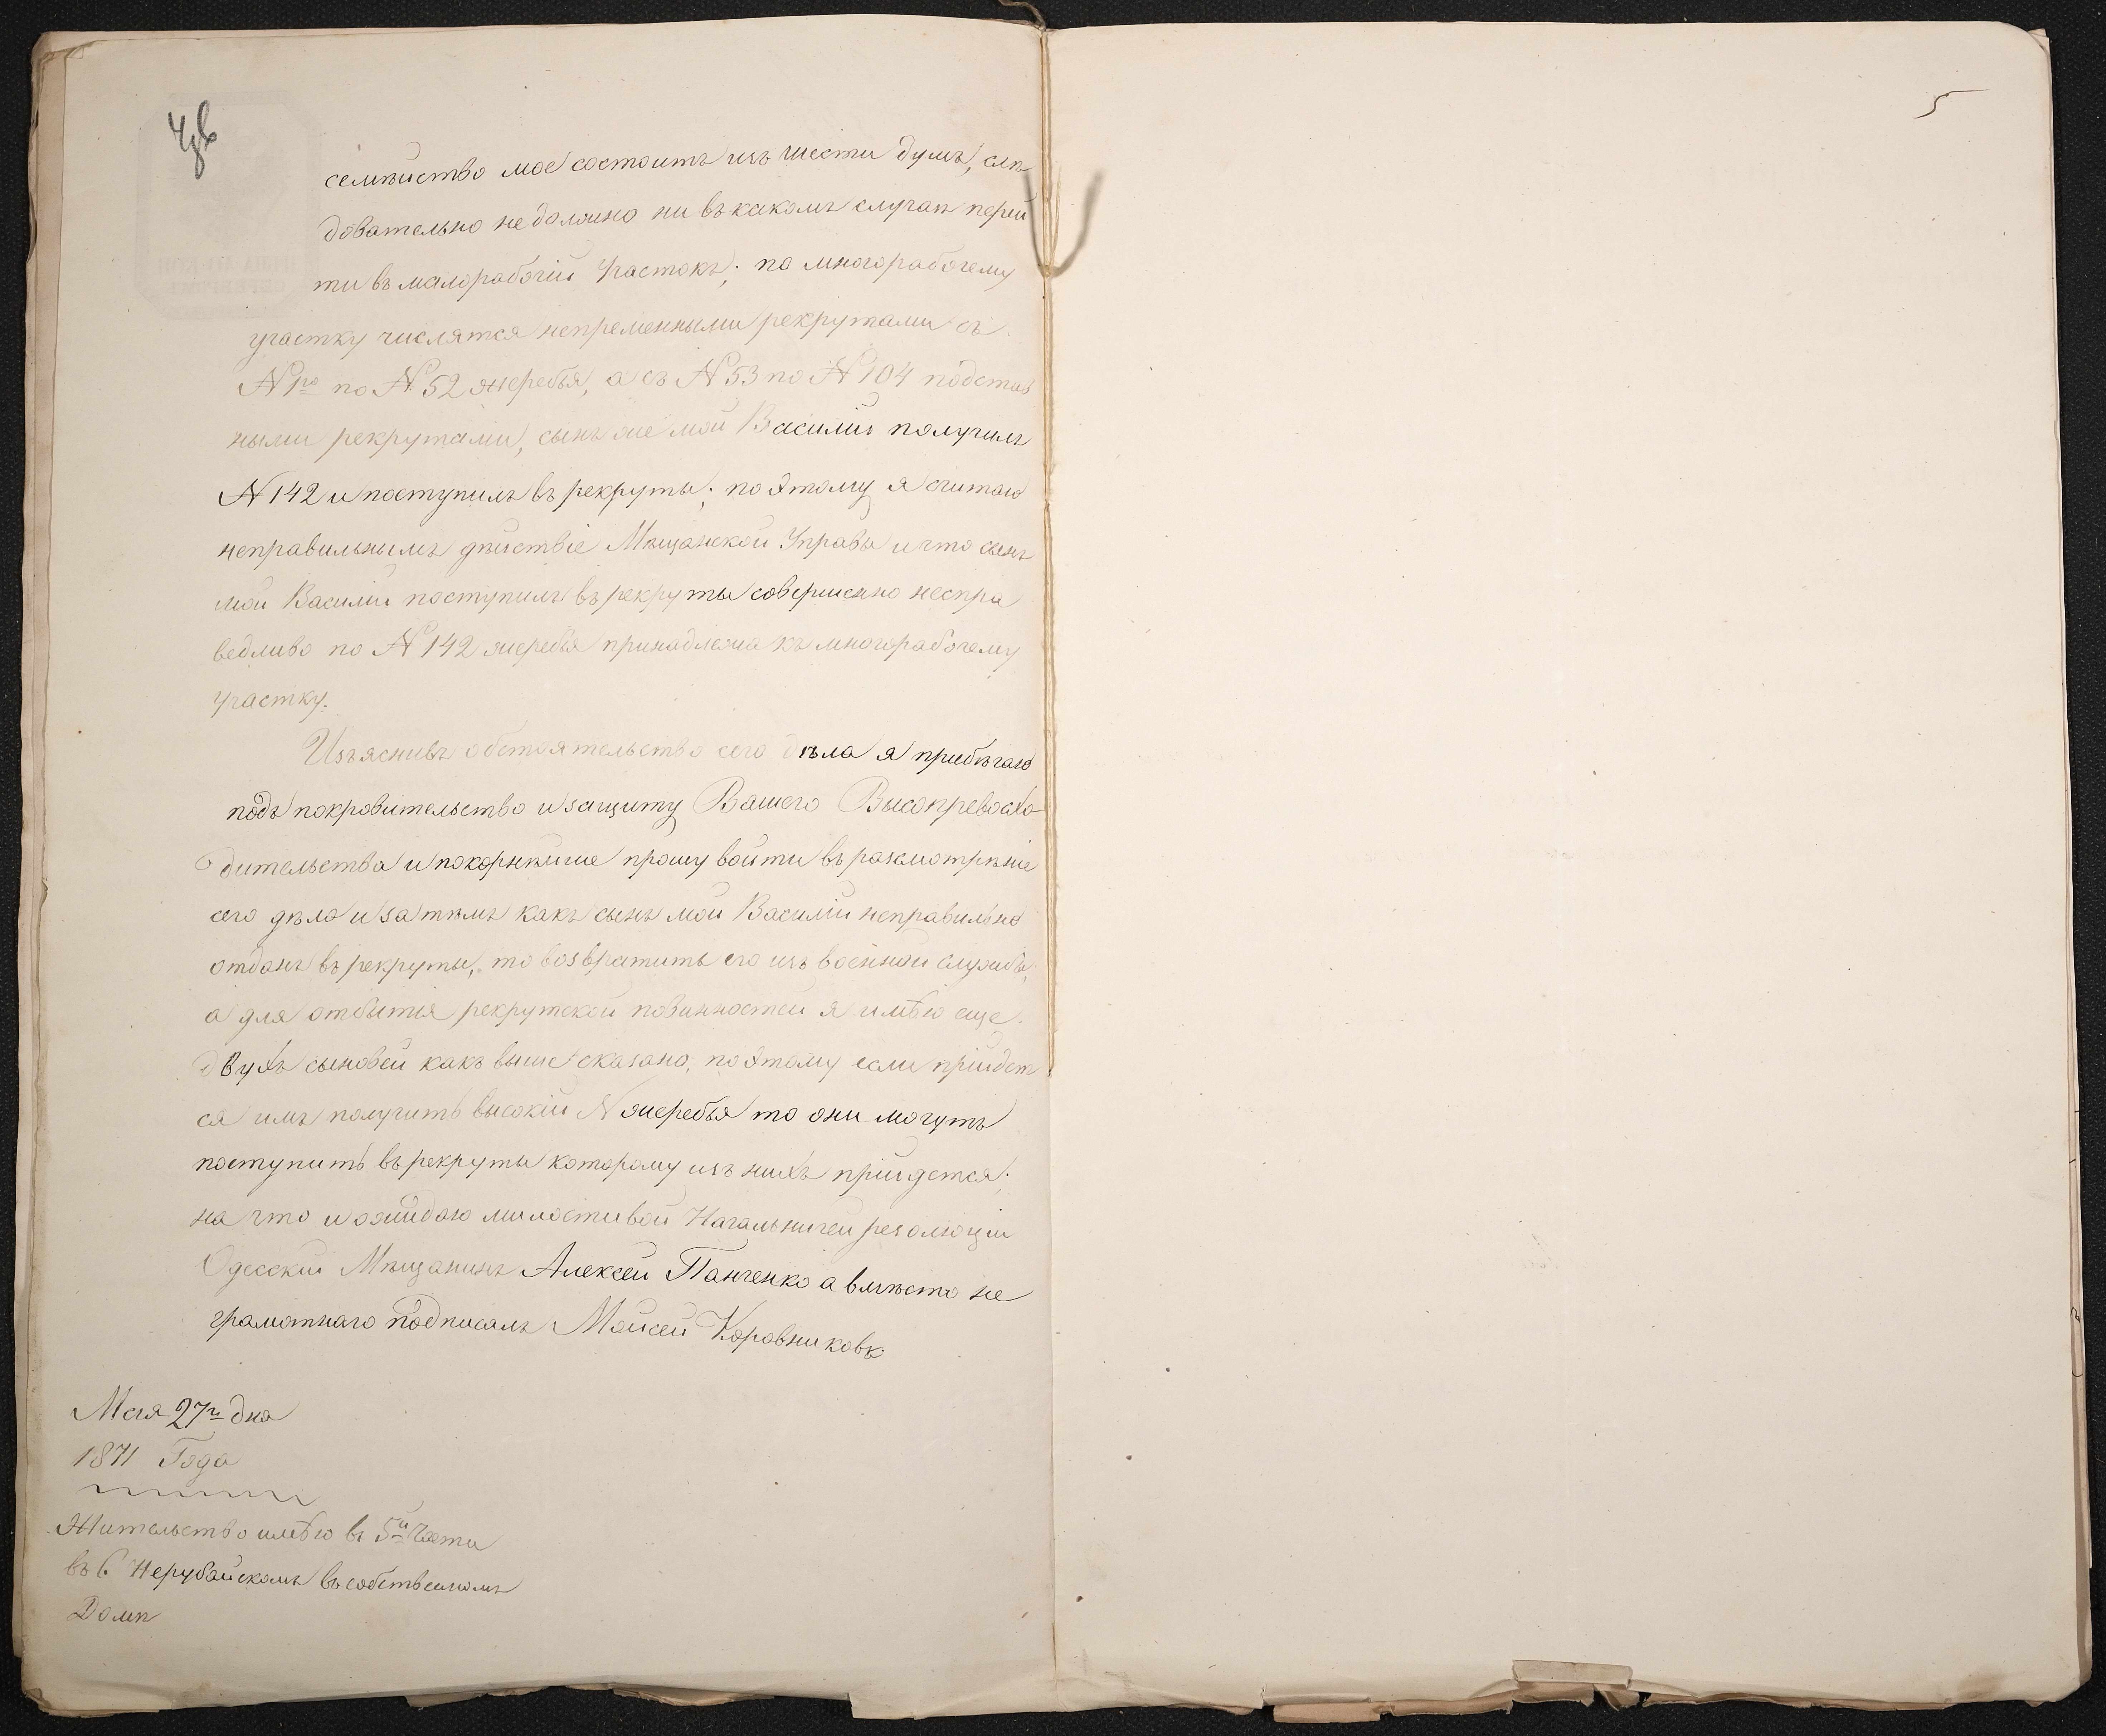 семѣйство мое состоитъ изъ шести душъ, слѣ
довательно не должно ни въ какомъ случаѣ перей
ти въ малорабочій участокъ; по многорабочему
участку числятся непременными рекрутами съ
№ 1го по № 52 жеребья, а съ № 53 по № 104 подстав
ными рекрутами, сынъ же мой Василій получилъ
№ 142 и поступилъ въ рекруты; по этому я считаю
неправильнымъ дѣйствіе Мѣщанской Управы и что сынъ
мой Василій поступилъ въ рекруты совершенно неспра
ведливо по № 142 жеребья принадлежа къ многорабочему
участку.
Изъяснивъ обстоятельство сего дѣла я прибѣгаю
подъ покровительство и защиту Вашего Высопревосхо-
дительства и покорнѣйше прошу войти въ разсмотрѣніе
сего дѣла и затѣмъ какъ сынъ мой Василій неправильно
отданъ въ рекруты, то возвратить его изъ военной службы,
а для отбытія рекрутской повинностей я имѣю еще
двухъ сыновей какъ выше сказано; по этому если прійдет
ся имъ получить высокій № жеребья то они могутъ
поступить въ рекруты которому изъ нихъ прійдется;
на что и ожидаю милостивой Начальничей резолюціи
Одесский Мѣщанинъ Алексей Панченко а вмѣсто не
грамотнаго подписалъ Мойсей Коровниковъ
Мая 27го дня
1871 Года
Жительство имѣю въ 5й Части
въ с. Нерубайскомъ въ собственномъ
Домѣ
5